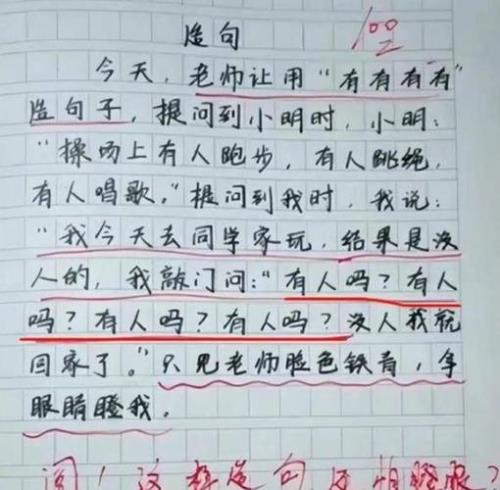 造句
100
今天，老师让用“有有有有”
造句子，提问到小明时，小明：
“操场上有人跑步，有人跳绳，
有人唱歌。”提问到我时，我说：
“我今天去同学家玩，结果是没
人的，我敲门问：“有人吗？有人
吗？有人吗？有人吗？没人我就
回家了。”只见老师脸色铁青，拿
眼睛瞪我。
阅！这样造句还怕瞪眼？